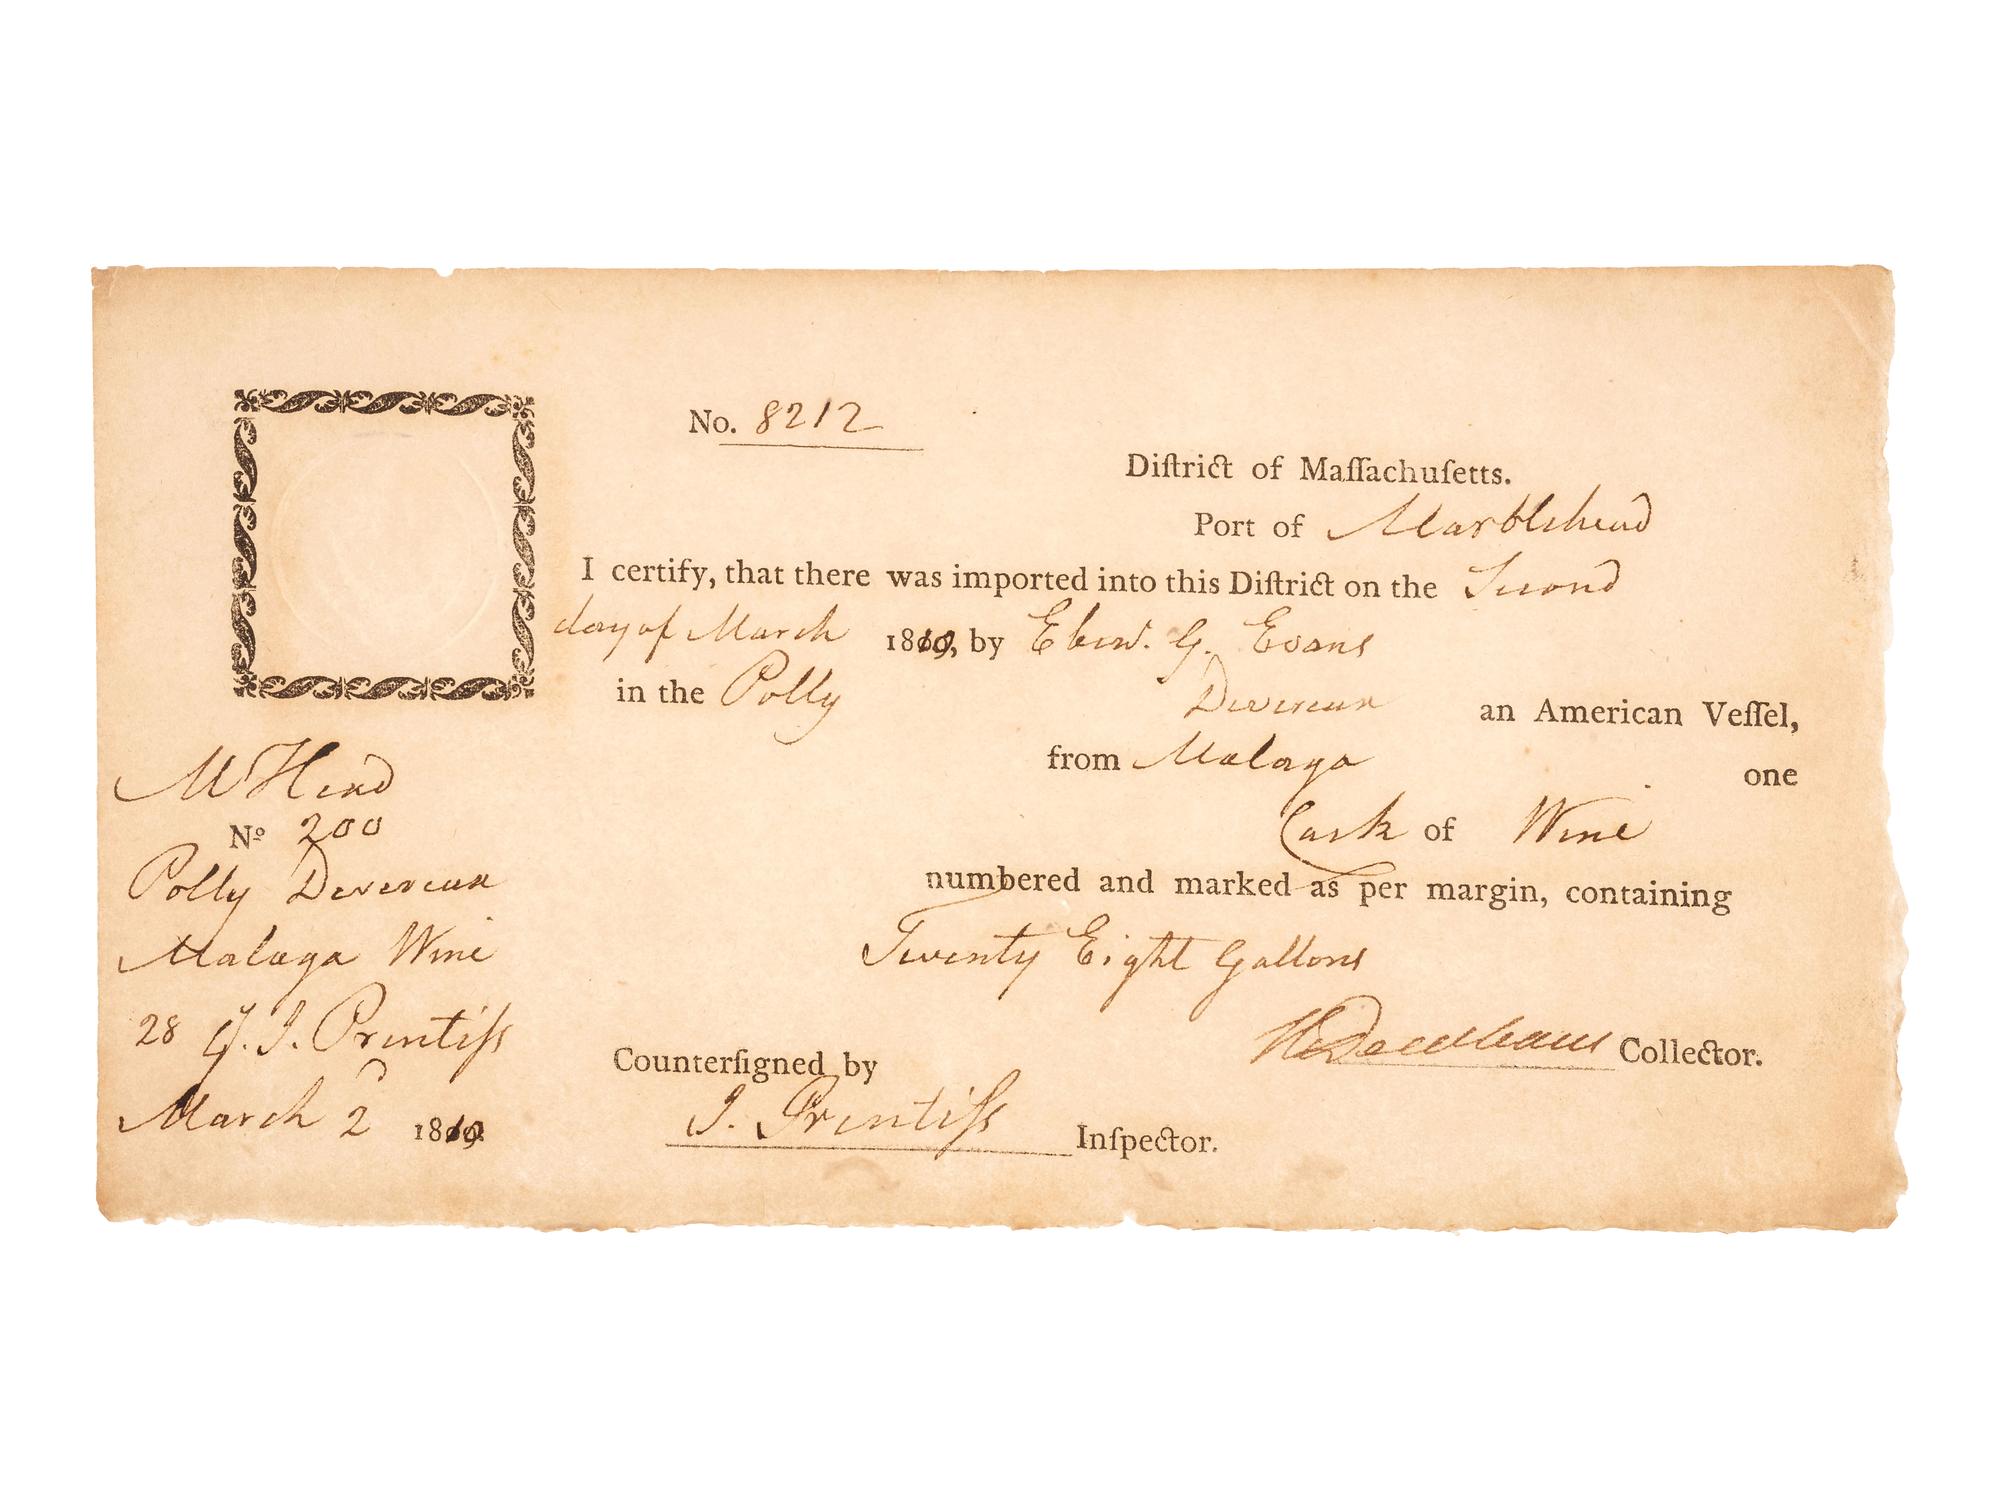 No. 8212
Diſtrict of Maſſachuſetts.
Port of Marblehead
I certify, that there was imported into this Diſtrict on the Second
day of March 1810, by Ebenr. G. Evans
in the Polly Devereux an American Veſſel,
from Malaga one
Cask of Wine
numbered and marked as per margin, containing
Twenty Eight Gallons
Collector.
Counterſigned by
J. Prentiſs Inſpector.
MHead
No 200
Polly Devereux
Malaga Wine
28 G. J. Prentiſs
March 2d 1810